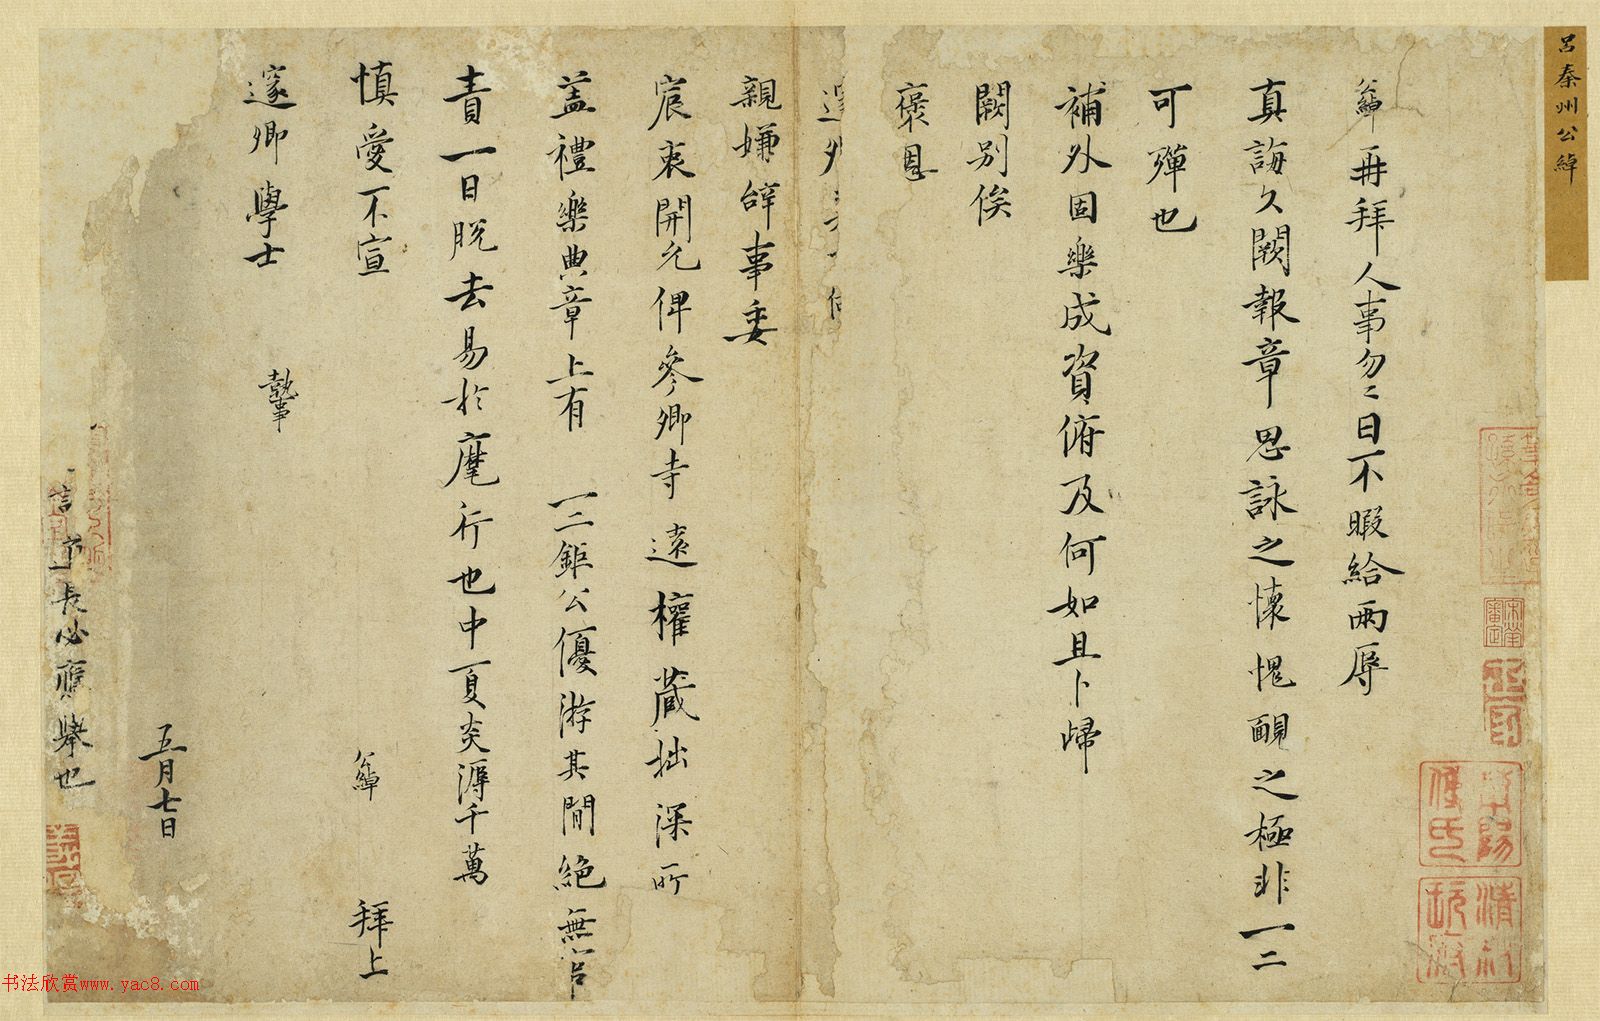 呂秦州公綽
公綽再拜人事匆〻日不暇給兩辱
真誨久闕報章思詠之懷愧靦之極非一二
可殫也
補外固樂成資俯及何如且卜歸
闕別俟
褒恩
親嫌辭事委
宸衷開允俾參卿寺遠權藏拙深所
益禮樂典章上有一二鉅公優游其間絕無官
責一日脫去易於麾斤也中夏炎溽千萬
慎愛不宣 公綽 拜上
邃卿學士 執事
五月七日
長必應舉也
書法欣賞www.yac8.com